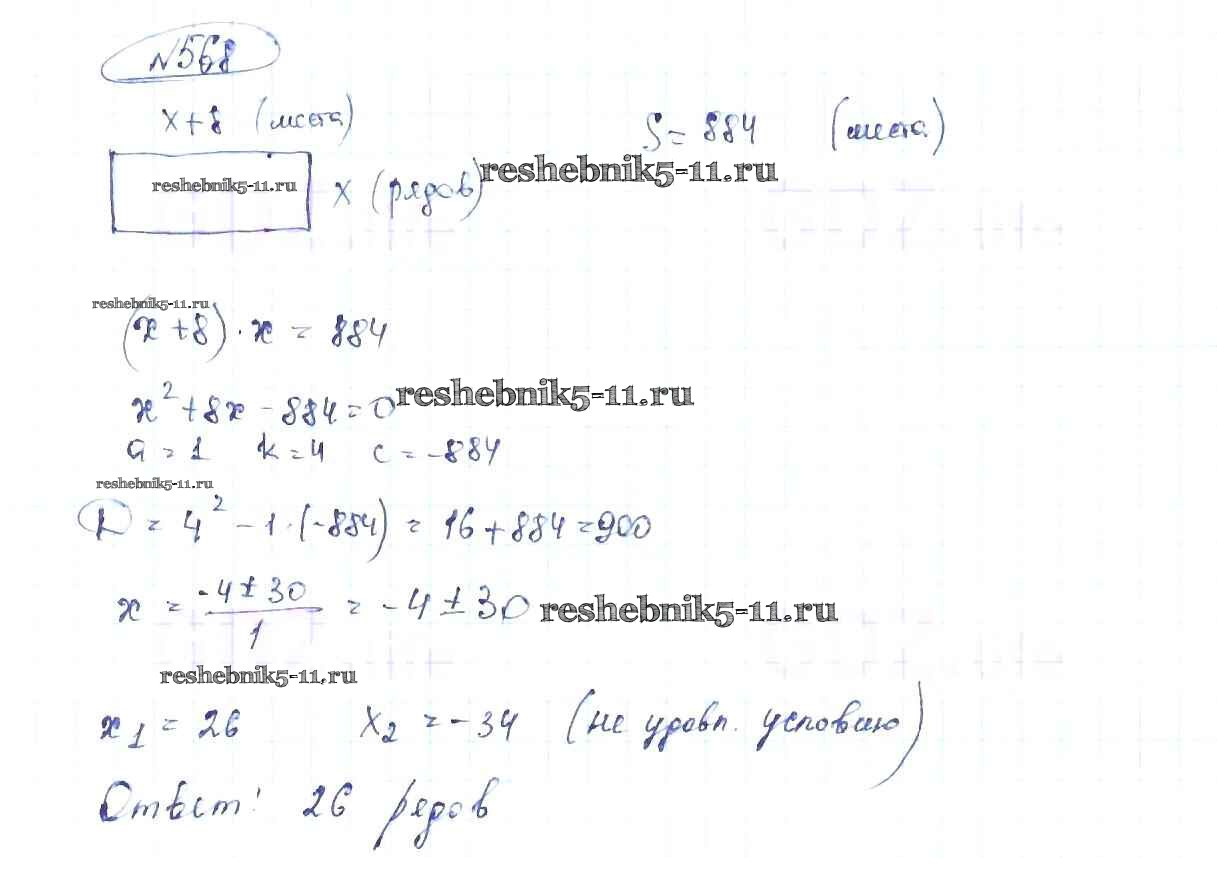 №568
x+8 (места)
S = 884 (места)
reshebnik5-11.ru
reshebnik5-11.ru x (рядов)
reshebnik5-11.ru
(x+8)·x = 884
x²+8x-884=0 reshebnik5-11.ru
a=1 k=4 c=-884
reshebnik5-11.ru
D = 4² - 1·(-884) = 16+884=900
x = -4±30/1 = -4±30 reshebnik5-11.ru
reshebnik5-11.ru
x₁ = 26 x₂ = -34 (не удовл. условию)
Ответ: 26 рядов